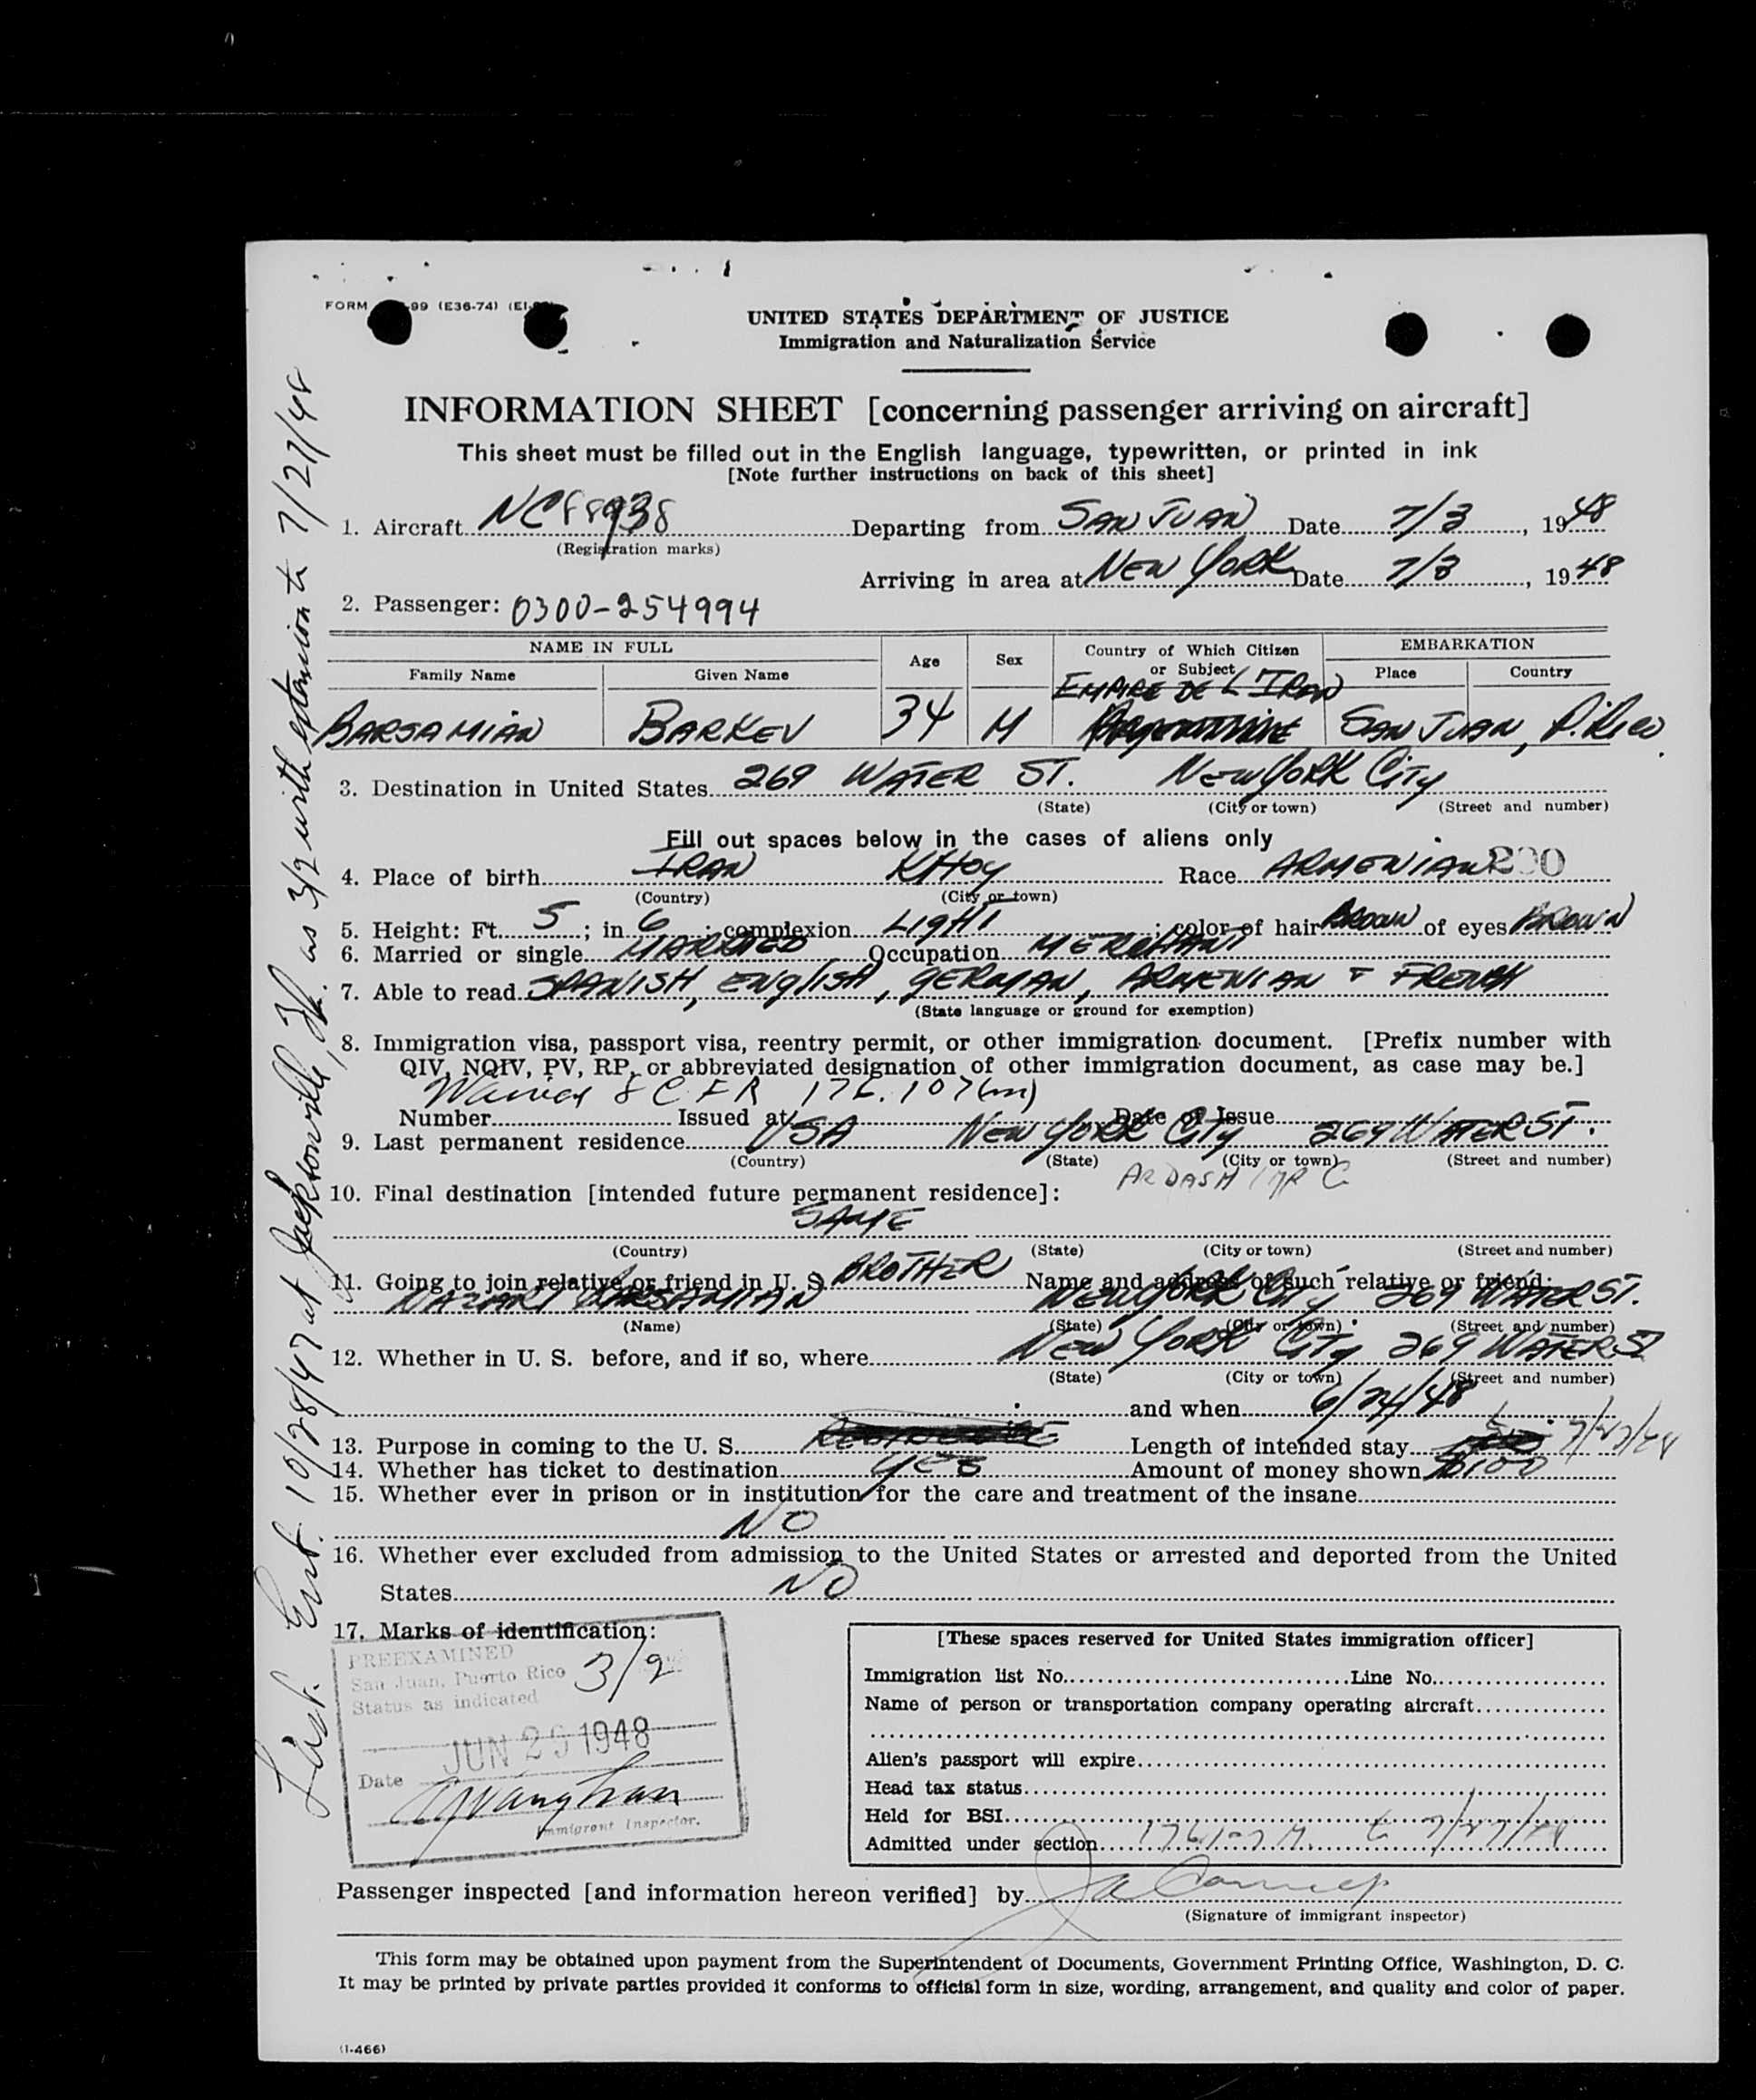 FORM -99 (E36-74) (EI-
UNITED STATES DEPARTMENT OF JUSTICE
Immigration and Naturalization Service
INFORMATION SHEET [concerning passenger arriving on aircraft]
This sheet must be filled out in the English language, typewritten, or printed in ink
[Note further instructions on back of this sheet]
1. Aircraft NC88938 Departing from SAN JUAN Date 7/3, 1948
(Registration marks)
Arriving in area at NEW YORK Date 7/3, 1948
2. Passenger: 0300-254994
NAME IN FULL Age Sex Country of Which Citizen or Subject EMBARKATION
Family Name Given Name Place Country
EMPIRE DE L'IRAN
BARSAMIAN BARKEV 34 M SAN JUAN, P. RICO
3. Destination in United States 269 WATER ST. NEW YORK CITY
(State) (City or town) (Street and number)
Fill out spaces below in the cases of aliens only
4. Place of birth IRAN KHOY Race ARMENIAN 200
(Country) (City or town)
5. Height: Ft. 5; in 6; complexion LIGHT; color of hair BROWN of eyes BROWN
6. Married or single MARRIED Occupation MERCHANT
7. Able to read SPANISH, ENGLISH, GERMAN, ARMENIAN & FRENCH
(State language or ground for exemption)
8. Immigration visa, passport visa, reentry permit, or other immigration document. [Prefix number with
QIV, NQIV, PV, RP, or abbreviated designation of other immigration document, as case may be.]
Waived 8 CFR 176.107(m)
Number Issued at Date of Issue
9. Last permanent residence USA NEW YORK CITY 269 WATER ST.
(Country) (State) (City or town) (Street and number)
10. Final destination [intended future permanent residence]:
SAME
(Country) (State) (City or town) (Street and number)
11. Going to join relative or friend in U. S. BROTHER Name and address of such relative or friend:
BARSAMIAN NEW YORK CITY 269 WATER ST.
(Name) (State) (City or town) (Street and number)
12. Whether in U. S. before, and if so, where NEW YORK CITY 269 WATER ST
(State) (City or town) (Street and number)
and when 6/24/48
13. Purpose in coming to the U. S. Length of intended stay 7/27/48
14. Whether has ticket to destination YES Amount of money shown $100
15. Whether ever in prison or in institution for the care and treatment of the insane
NO
16. Whether ever excluded from admission to the United States or arrested and deported from the United
States NO
17. Marks of identification:
PREEXAMINED
San Juan, Puerto Rico 3/2
Status as indicated
JUN 29 1948
Date
Immigrant Inspector.
[These spaces reserved for United States immigration officer]
Immigration list No. Line No.
Name of person or transportation company operating aircraft
Alien's passport will expire
Head tax status
Held for BSI
Admitted under section 176.107 M. to 7/27/48
Passenger inspected [and information hereon verified] by
(Signature of immigrant inspector)
This form may be obtained upon payment from the Superintendent of Documents, Government Printing Office, Washington, D. C.
It may be printed by private parties provided it conforms to official form in size, wording, arrangement, and quality and color of paper.
(I-466)
Last Ent. 10/28/47 at Jacksonville, Fl. as 3/2 with extension to 7/27/48